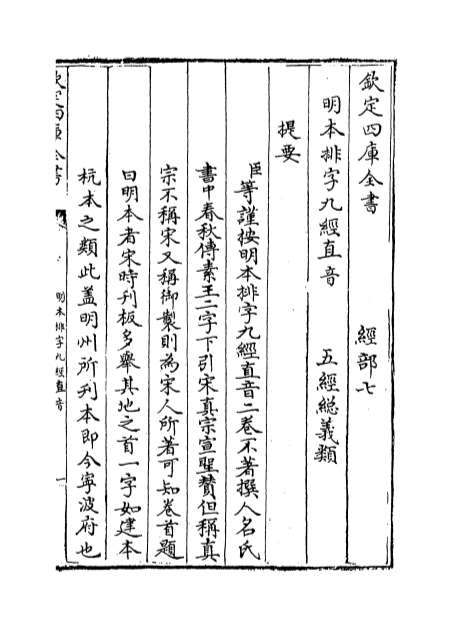 欽定四庫全書　經部七
明本排字九經直音　五經總義類
提要
臣等謹按明本排字九經直音二卷不著撰人名氏
書中春秋傳素王二字下引宋真宗宣聖贊但稱真
宗不稱宋又稱御製則為宋人所著可知卷首題
曰明本者宋時刋板多舉其地之首一字如建本
杭本之類此蓋明州所刋本即今寧波府也
欽定四庫全書
明本排字九經直音
一